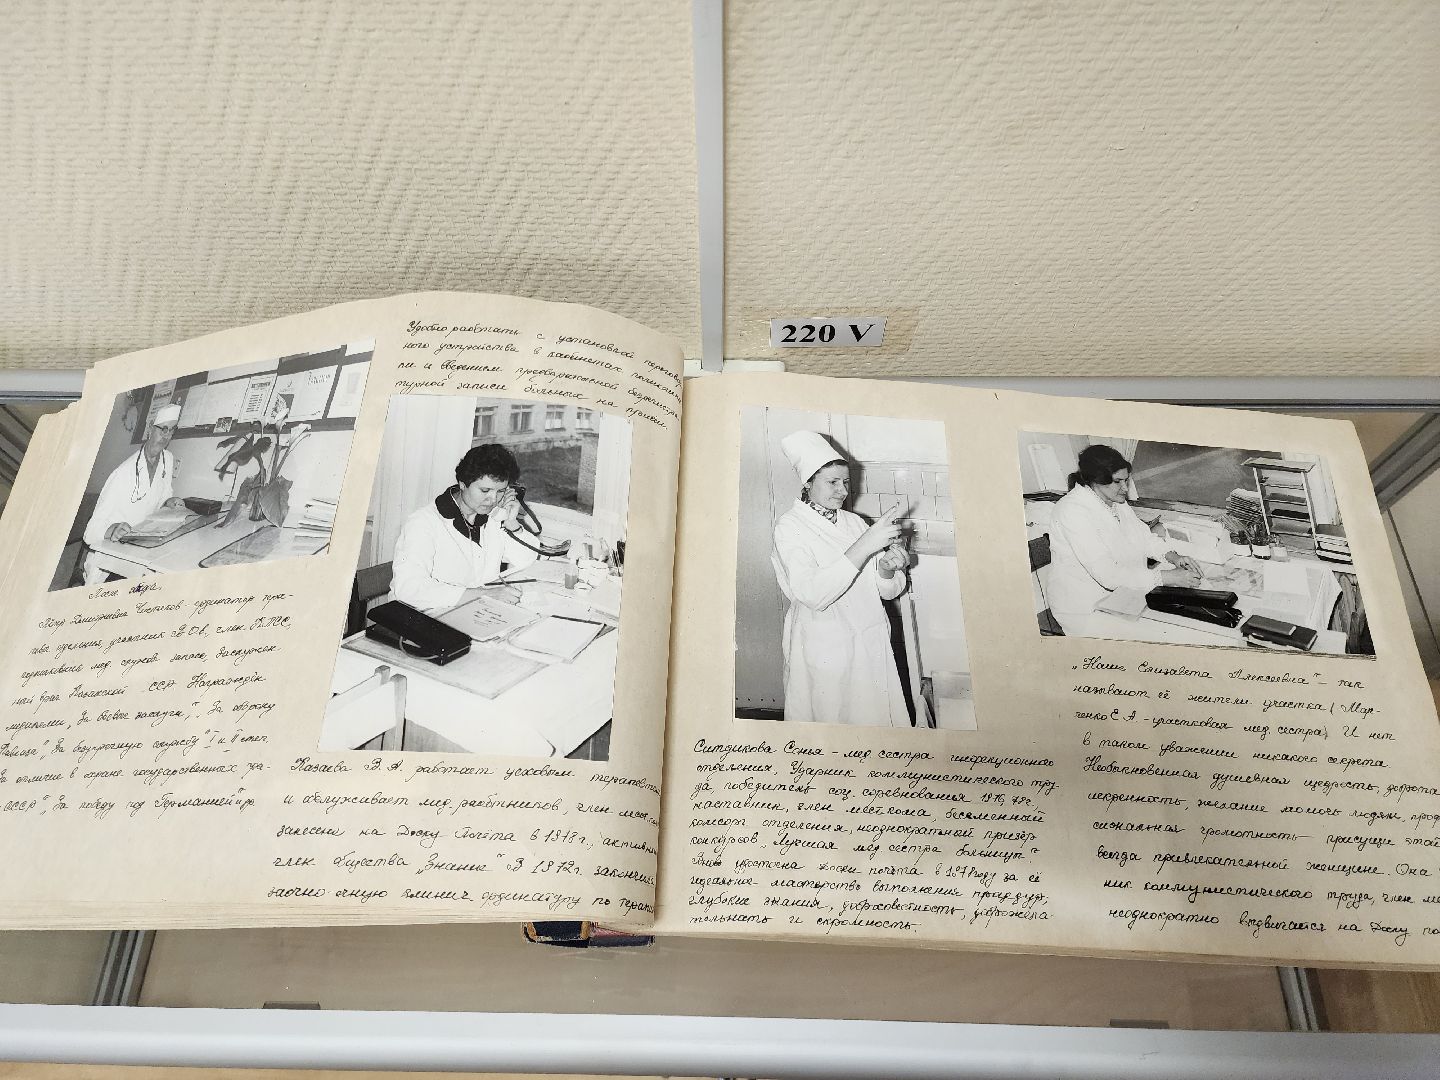 220 V
Удобно работать с установкой переговор
ного устройства в кабинетах поликлини
ки и введением предварительной безрегистра
турной записи больных на прием.
После обхода.
Пётр Дмитриевич ординатор тера-
отделения, участник ВОв, член КПСС,
мед. службы запаса, заслужен
ный врач Казахской ССР. Награждён
медалями „За боевые заслуги", „За оборону
„За безупречную службу" I и II степ.
За отличие в охране государственных гра-
СССР", „За победу над Германией" и др.
Казаева В. А. работает цеховым терапевтом
и обслуживает мед. работников, член месткома
занесена на Доску Почёта в 1978г., активный
член общества „Знание". В 1972г. закончила
заочно-очную клинич. ординатуру по терапии
Ситдикова Софья – мед. сестра инфекционного
отделения, Ударник коммунистического тру-
да, победитель соц. соревнования 1976, 78г.,
наставник, член месткома, бессменный
комсорг отделения, неоднократный призёр
конкурсов „Лучшая мед. сестра больницы".
удостоена доски почёта в 1978 году за её
идеальное мастерство выполнения процедур,
глубокие знания, добросовестность, доброжела-
тельность и скромность.
„Наша Елизавета Алексеевна" – так
называют её жители участка (Мар-
ченко Е. А. – участковая мед. сестра). И нет
в таком уважении никакого секрета.
Необыкновенная душевная щедрость, доброта
искренность, желание помочь людям, профес
сиональная грамотность присущи этой
всегда привлекательной женщине. Она
ник коммунистического труда, член ме
неоднократно выдвигается на Доску по